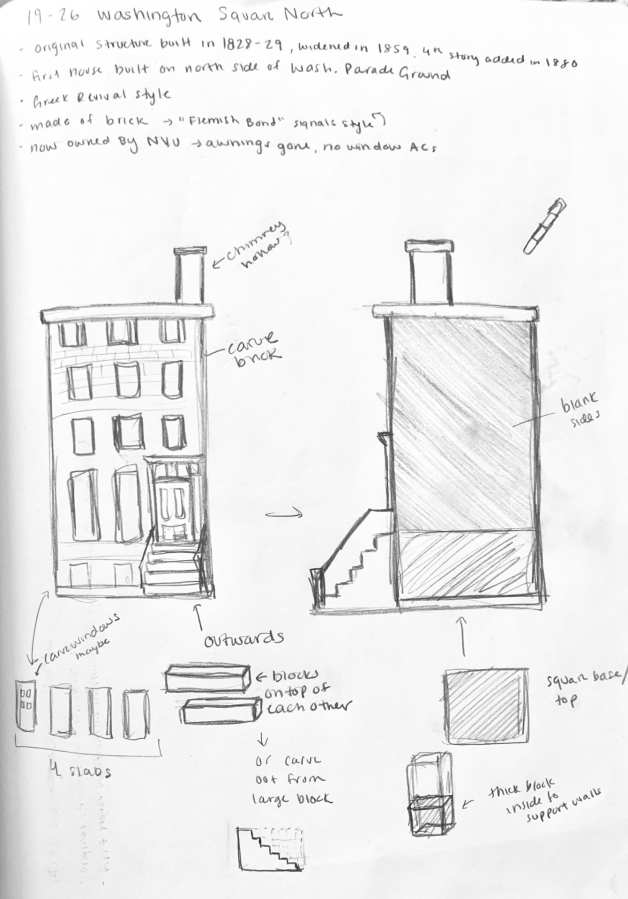 19-26 Washington Square North
• original structure built in 1828-29, widened in 1859, 4th story added in 1880
• first house built on north side of Wash. Parade Ground
• Greek Revival style
• made of brick → "Flemish Bond" signals style
• now owned By NYU → awnings gone, no window ACs
← chimney
hollow?
← carve
brick
blank
sides
carve windows
maybe
outwards
← blocks
on top of
each other
4 slabs
or carve
out from
large block
square base/
top
← thick block
inside to
support walls